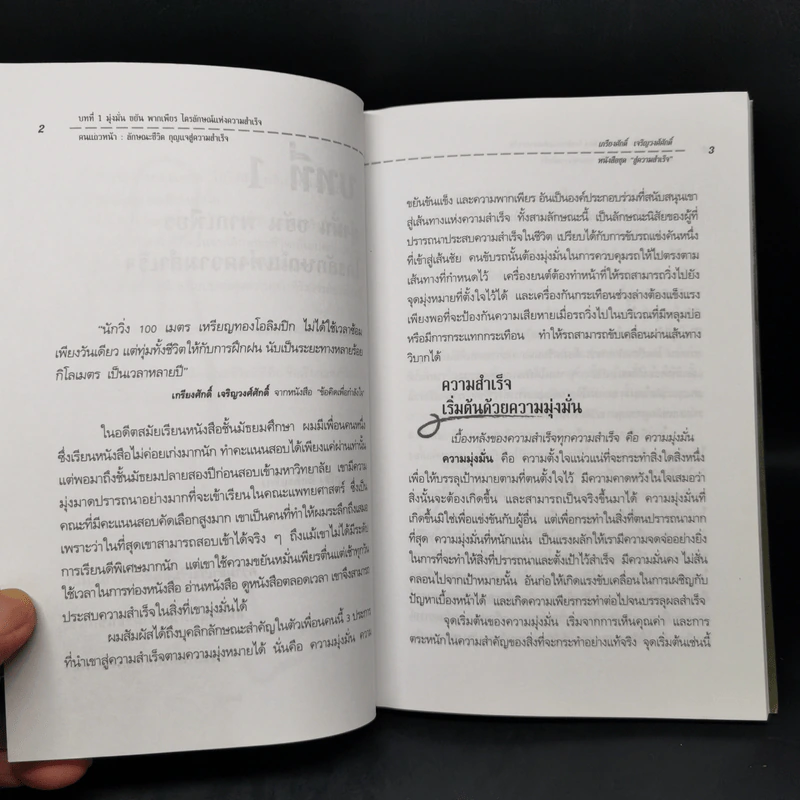 2
บทที่ 1 มุ่งมั่น ขยัน พากเพียร ไตรลักษณ์แห่งความสำเร็จ
คนแถวหน้า : ลักษณะชีวิต กุญแจสู่ความสำเร็จ
"นักวิ่ง 100 เมตร เหรียญทองโอลิมปิก ไม่ได้ใช้เวลาซ้อม
เพียงวันเดียว แต่ทุ่มทั้งชีวิตให้กับการฝึกฝน นับเป็นระยะทางหลายร้อย
กิโลเมตร เป็นเวลาหลายปี"
เกรียงศักดิ์ เจริญวงศ์ศักดิ์ จากหนังสือ "ข้อคิดเพื่อกำลังใจ"
ในอดีตสมัยเรียนหนังสือชั้นมัธยมศึกษา ผมมีเพื่อนคนหนึ่ง
ซึ่งเรียนหนังสือไม่ค่อยเก่งมากนัก ทำคะแนนสอบได้เพียงแค่ผ่านเท่านั้น
แต่พอมาถึงชั้นมัธยมปลายสองปีก่อนสอบเข้ามหาวิทยาลัย เขามีความ
มุ่งมาดปรารถนาอย่างมากที่จะเข้าเรียนในคณะแพทยศาสตร์ ซึ่งเป็น
คณะที่มีคะแนนสอบคัดเลือกสูงมาก เขาเป็นคนที่ทำให้ผมระลึกถึงเสมอ
เพราะว่าในที่สุดเขาสามารถสอบเข้าได้จริง ๆ ถึงแม้เขาไม่ได้มีระดับ
การเรียนดีพิเศษมากนัก แต่เขาใช้ความขยันหมั่นเพียรตื่นแต่เช้าทุกวัน
ใช้เวลาในการท่องหนังสือ อ่านหนังสือ ดูหนังสือตลอดเวลา เขาจึงสามารถ
ประสบความสำเร็จในสิ่งที่เขามุ่งมั่นได้
ผมสัมผัสได้ถึงบุคลิกลักษณะสำคัญในตัวเพื่อนคนนี้ 3 ประการ
ที่นำเขาสู่ความสำเร็จตามความมุ่งหมายได้ นั่นคือ ความมุ่งมั่น ความ
เกรียงศักดิ์ เจริญวงศ์ศักดิ์
หนังสือชุด "สู่ความสำเร็จ"
3
ขยันขันแข็ง และความพากเพียร อันเป็นองค์ประกอบร่วมที่สนับสนุนเขา
สู่เส้นทางแห่งความสำเร็จ ทั้งสามลักษณะนี้ เป็นลักษณะนิสัยของผู้ที่
ปรารถนาประสบความสำเร็จในชีวิต เปรียบได้กับการขับรถแข่งคันหนึ่ง
ที่เข้าสู่เส้นชัย คนขับรถนั้นต้องมุ่งมั่นในการควบคุมรถให้ไปตรงตาม
เส้นทางที่กำหนดไว้ เครื่องยนต์ต้องทำหน้าที่ให้รถสามารถวิ่งไปยัง
จุดมุ่งหมายที่ตั้งใจไว้ได้ และเครื่องกันกระเทือนช่วงล่างต้องแข็งแรง
เพียงพอที่จะป้องกันความเสียหายเมื่อรถวิ่งไปในบริเวณที่มีหลุมบ่อ
หรือมีการกระแทกกระเทือน ทำให้รถสามารถขับเคลื่อนผ่านเส้นทาง
วิบากได้
ความสำเร็จ
เริ่มต้นด้วยความมุ่งมั่น
เบื้องหลังของความสำเร็จทุกความสำเร็จ คือ ความมุ่งมั่น
ความมุ่งมั่น คือ ความตั้งใจแน่วแน่ที่จะกระทำสิ่งใดสิ่งหนึ่ง
เพื่อให้บรรลุเป้าหมายตามที่ตนตั้งใจไว้ มีความคาดหวังในใจเสมอว่า
สิ่งนั้นจะต้องเกิดขึ้น และสามารถเป็นจริงขึ้นมาได้ ความมุ่งมั่นที่
เกิดขึ้นมิใช่เพื่อแข่งขันกับผู้อื่น แต่เพื่อกระทำในสิ่งที่ตนปรารถนามาก
ที่สุด ความมุ่งมั่นที่หนักแน่น เป็นแรงผลักให้เรามีความจดจ่ออย่างยิ่ง
ในการที่จะทำสิ่งที่ปรารถนาและตั้งเป้าไว้สำเร็จ มีความมั่นคง ไม่สั่น
คลอนไปจากเป้าหมายนั้น อันก่อให้เกิดแรงขับเคลื่อนในการเผชิญกับ
ปัญหาเบื้องหน้าได้ และเกิดความเพียรกระทำต่อไปจนบรรลุผลสำเร็จ
จุดเริ่มต้นของความมุ่งมั่น เริ่มจากการเห็นคุณค่า และการ
ตระหนักในความสำคัญของสิ่งที่จะกระทำอย่างแท้จริง จุดเริ่มต้นเช่นนี้